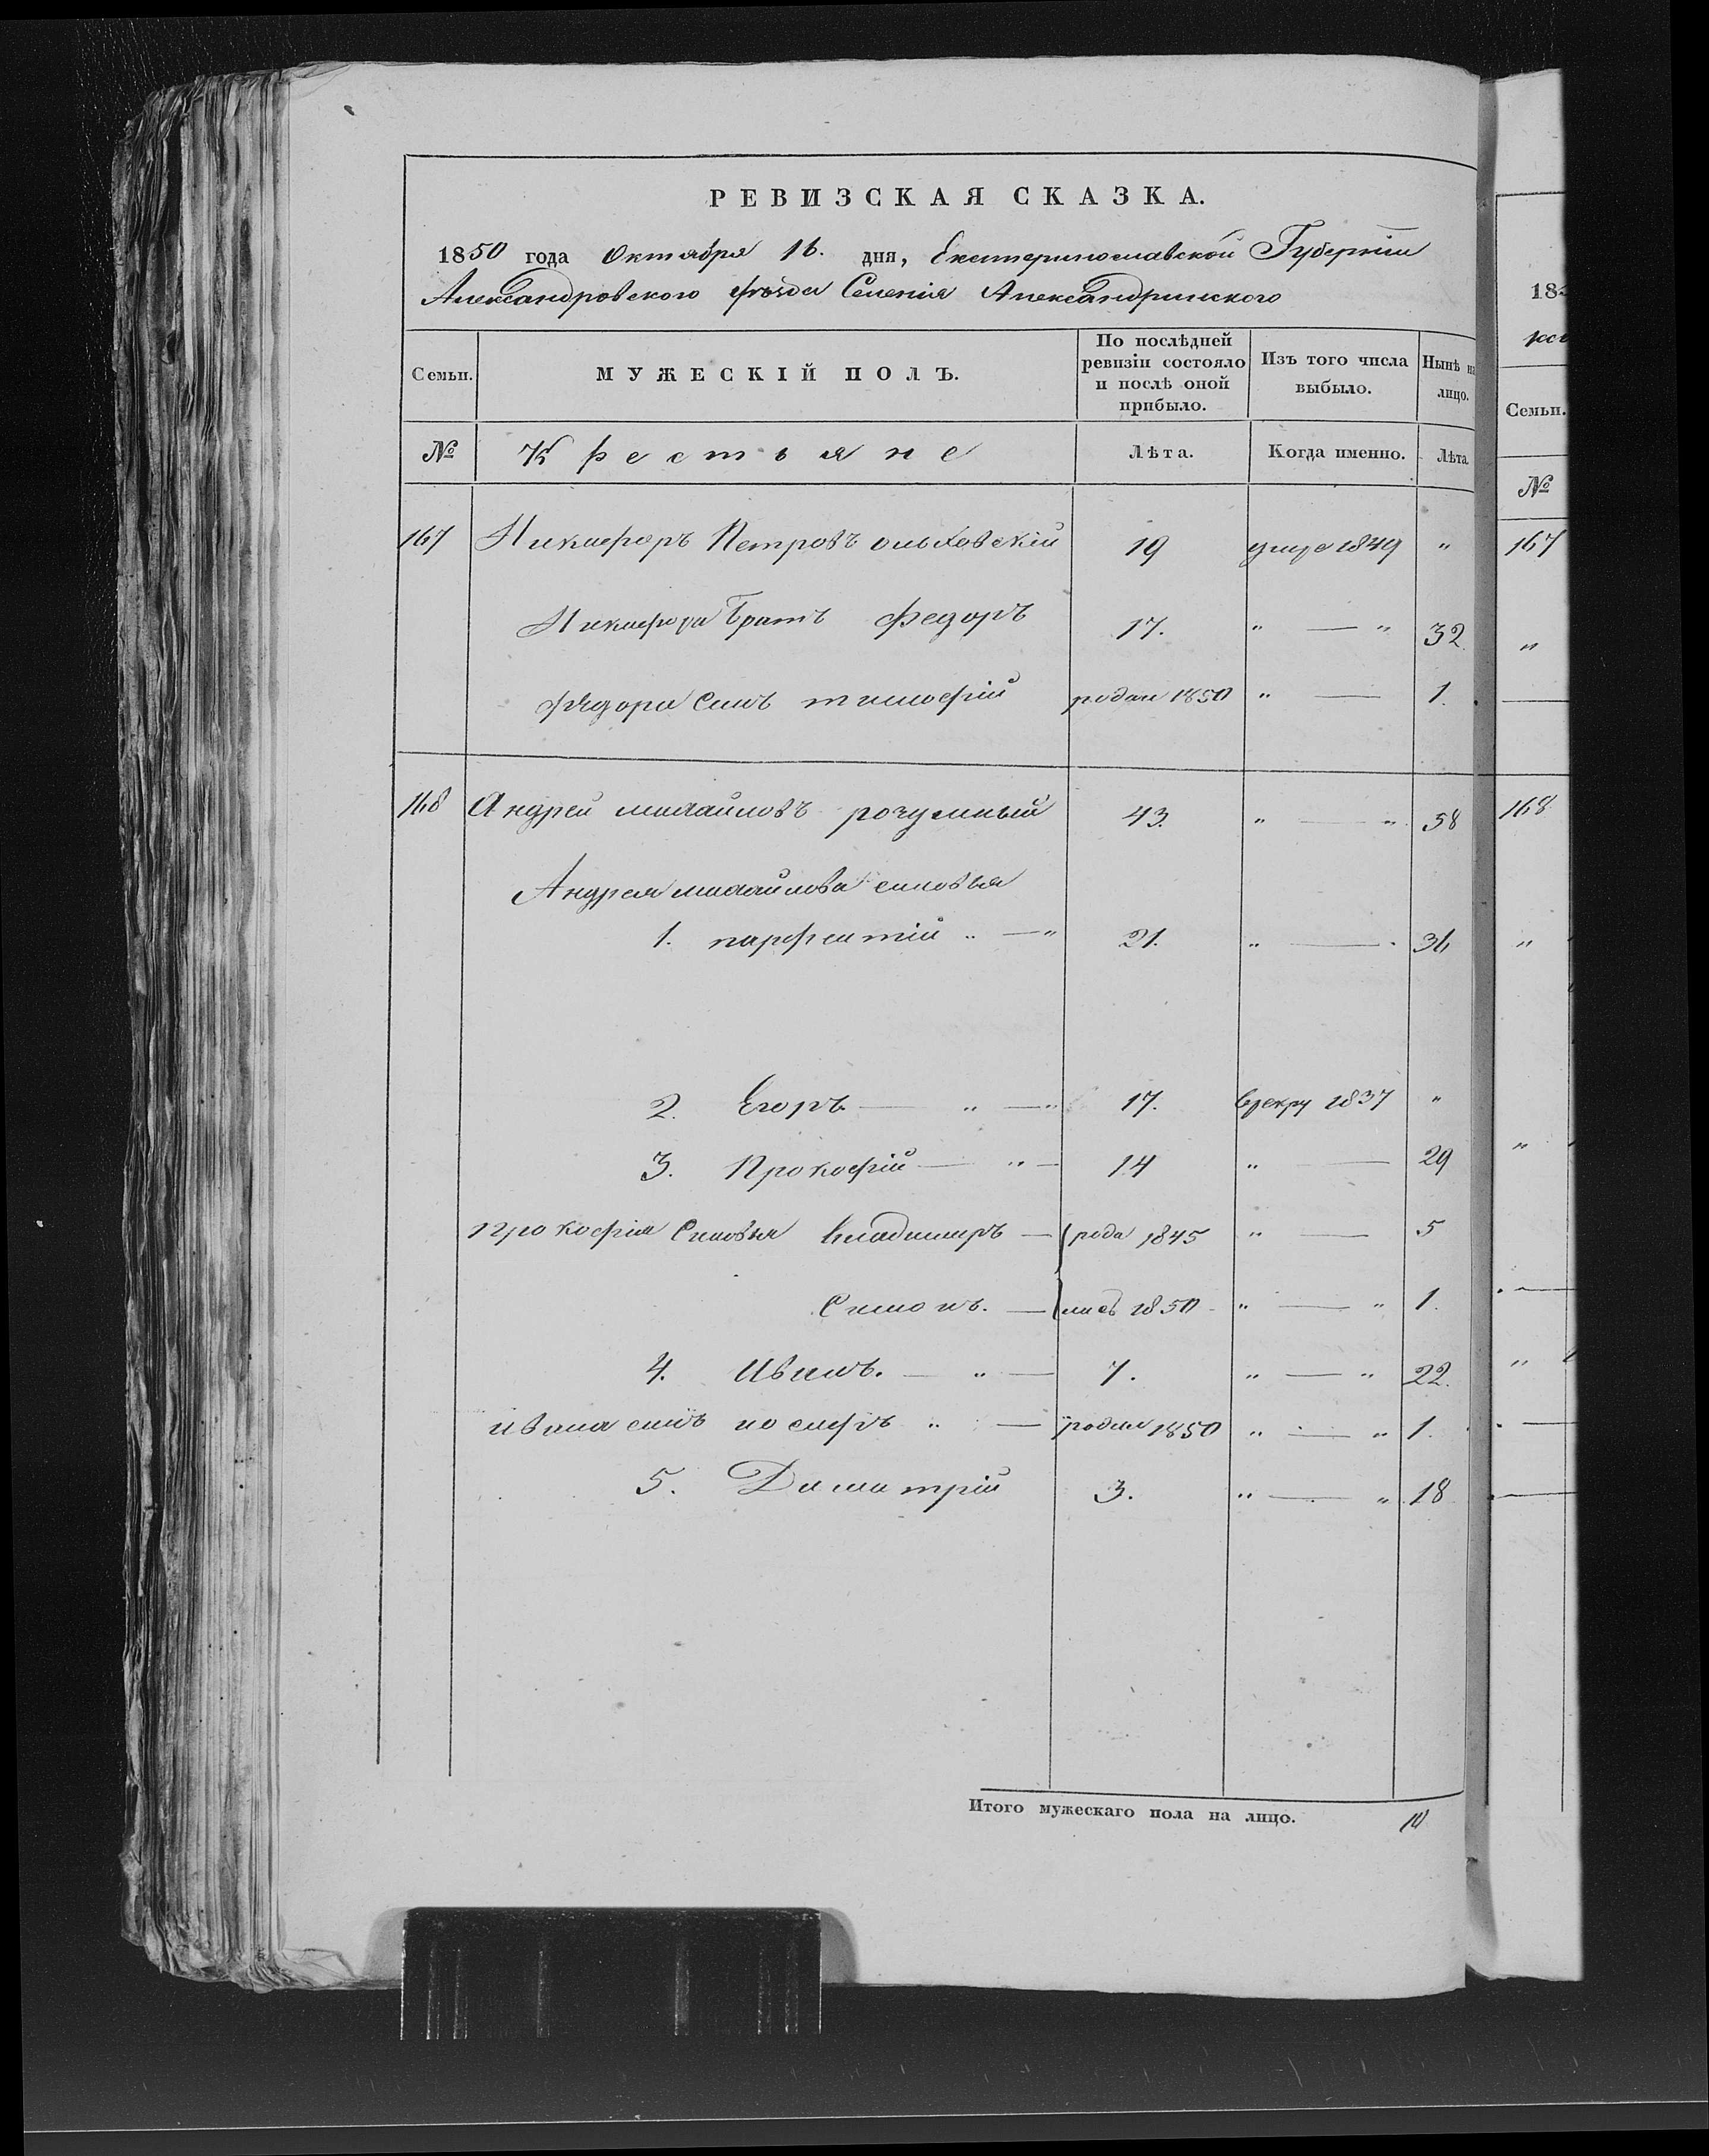 РЕВИЗСКАЯ СКАЗКА.
1850 года Октября 16. дня, Екатеринославской Губерніи
Александровского уѣзда Селенія Александринского
Семьи. МУЖЕСКІЙ ПОЛЪ. По послѣдней ревизіи состояло и послѣ оной прибыло. Изъ того числа выбыло. Нынѣ на лицо.
№ Крестьяне Лѣта. Когда именно. Лѣта
167 Никифоръ Петровъ ольховскій 19 умре 1849 "
Никифора братъ Федоръ 17. " — " 32.
Федора сынъ тимофій родил 1850 " — 1.
168 Андрей михайловъ розумный 43. " — " 58
Андрея михайлова сыновья
1. парфентій " — " 21. " — 36
2. Егоръ — " — " 17. врекру 1837 "
3. Прокофій — " — 14 " — 29
прокофія Сыновья владимиръ — роди 1845 " — 5
Симонъ. — лись 1850 " — " 1.
4. Иванъ. — " — 7. " — " 22.
ивана сынъ иосифъ " — родил 1850 " — " 1.
5. Димитрій 3. " — " 18
Итого мужескаго пола на лицо. 10
18
Семьи.
№
167
"
—
168
"
"
"